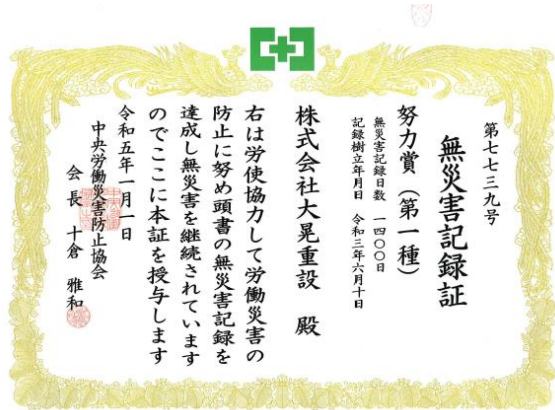 第七七三九号
無災害記録証
努力賞（第一種）
無災害記録日数　一四〇〇日
記録樹立年月日　令和三年六月十日
株式会社大晃重設　殿
右は労使協力して労働災害の
防止に努め頭書の無災害記録を
達成し無災害を継続されています
のでここに本証を授与します
令和五年一月一日
中央労働災害防止協会
会長　十倉　雅和